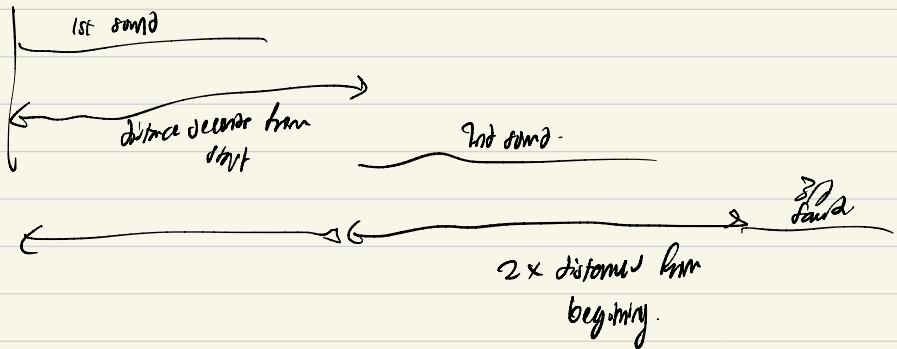 1st sound
distance seconds from
start
2nd sound.
3rd
sound
2x distance from
beginning.